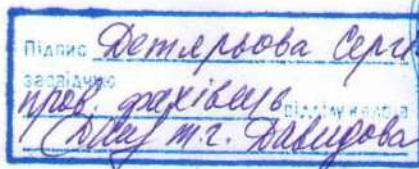 Підпис Дегтярьова Сергі
засвідчую
пров. фахівець відділу кадрів
Давидова